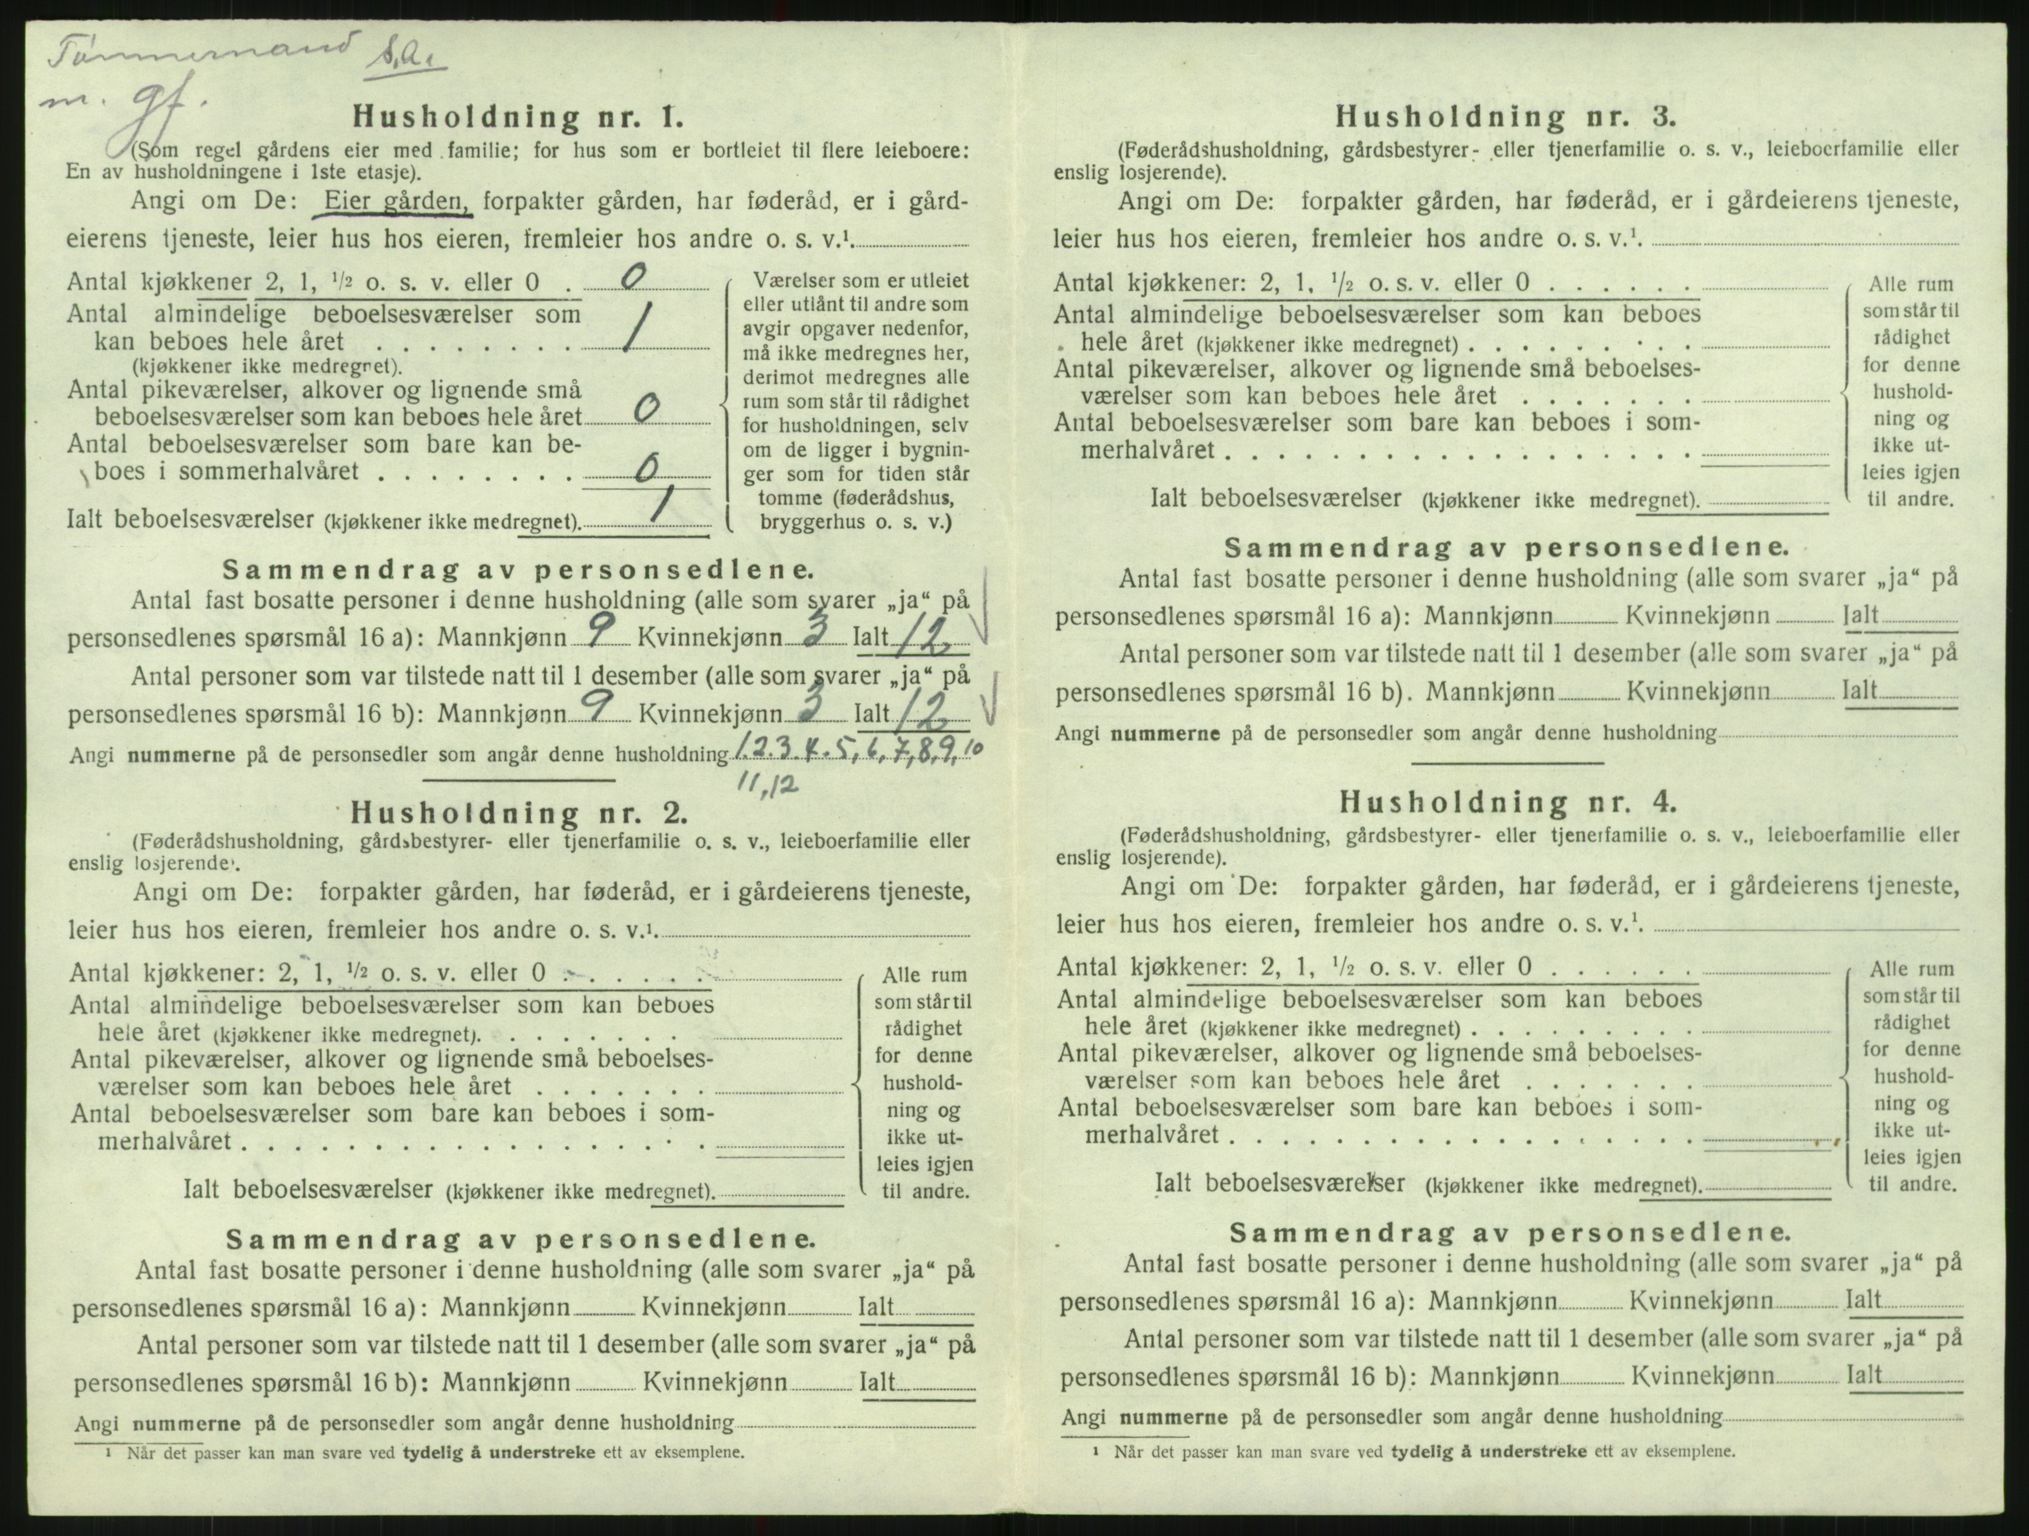 Tømmermand s.a.
m. gf.
Husholdning nr. 1.
(Som regel gårdens eier med familie; for hus som er bortleiet til flere leieboere:
En av husholdningene i 1ste etasje).
Angi om De: Eier gården, forpakter gården, har føderåd, er i gård-
eierens tjeneste, leier hus hos eieren, fremleier hos andre o. s. v.¹.
Antal kjøkkener 2, 1, ½ o. s. v. eller 0 . 0
Antal almindelige beboelsesværelser som
kan beboes hele året . . . . . . . . 1
(kjøkkener ikke medregnet).
Antal pikeværelser, alkover og lignende små
beboelsesværelser som kan beboes hele året 0
Antal beboelsesværelser som bare kan be-
boes i sommerhalvåret . . . . . . . . 0
Ialt beboelsesværelser (kjøkkener ikke medregnet). 1
Værelser som er utleiet
eller utlånt til andre som
avgir opgaver nedenfor,
må ikke medregnes her,
derimot medregnes alle
rum som står til rådighet
for husholdningen, selv
om de ligger i bygnin-
ger som for tiden står
tomme (føderådshus,
bryggerhus o. s. v.)
Sammendrag av personsedlene.
Antal fast bosatte personer i denne husholdning (alle som svarer „ja“ på
personsedlenes spørsmål 16 a): Mannkjønn 9 Kvinnekjønn 3 Ialt 12
Antal personer som var tilstede natt til 1 desember (alle som svarer „ja“ på
personsedlenes spørsmål 16 b): Mannkjønn 9 Kvinnekjønn 3 Ialt 12
Angi nummerne på de personsedler som angår denne husholdning 1.2.3.4.5,6,7,8,9,10
11,12
Husholdning nr. 2.
(Føderådshusholdning, gårdsbestyrer- eller tjenerfamilie o. s. v., leieboerfamilie eller
enslig losjerende).
Angi om De: forpakter gården, har føderåd, er i gårdeierens tjeneste,
leier hus hos eieren, fremleier hos andre o. s. v.¹.
Antal kjøkkener: 2, 1, ½ o. s. v. eller 0 . . . . . .
Antal almindelige beboelsesværelser som kan beboes
hele året (kjøkkener ikke medregnet). . . . . . . .
Antal pikeværelser, alkover og lignende små beboelses-
værelser som kan beboes hele året . . . . . . .
Antal beboelsesværelser som bare kan beboes i som-
merhalvåret . . . . . . . . . . . . . . . . . .
Ialt beboelsesværelser (kjøkkener ikke medregnet).
Alle rum
som står til
rådighet
for denne
hushold-
ning og
ikke ut-
leies igjen
til andre.
Sammendrag av personsedlene.
Antal fast bosatte personer i denne husholdning (alle som svarer „ja“ på
personsedlenes spørsmål 16 a): Mannkjønn Kvinnekjønn Ialt
Antal personer som var tilstede natt til 1 desember (alle som svarer „ja“ på
personsedlenes spørsmål 16 b): Mannkjønn Kvinnekjønn Ialt
Angi nummerne på de personsedler som angår denne husholdning
¹ Når det passer kan man svare ved tydelig å understreke ett av eksemplene.
Husholdning nr. 3.
(Føderådshusholdning, gårdsbestyrer- eller tjenerfamilie o. s. v., leieboerfamilie eller
enslig losjerende).
Angi om De: forpakter gården, har føderåd, er i gårdeierens tjeneste,
leier hus hos eieren, fremleier hos andre o. s. v.¹.
Antal kjøkkener: 2, 1, ½ o. s. v. eller 0 . . . . . .
Antal almindelige beboelsesværelser som kan beboes
hele året (kjøkkener ikke medregnet) . . . . . . . . .
Antal pikeværelser, alkover og lignende små beboelses-
værelser som kan beboes hele året . . . . . . .
Antal beboelsesværelser som bare kan beboes i som-
merhalvåret . . . . . . . . . . . . . . . . . .
Ialt beboelsesværelser (kjøkkener ikke medregnet).
Alle rum
som står til
rådighet
for denne
hushold-
ning og
ikke ut-
leies igjen
til andre.
Sammendrag av personsedlene.
Antal fast bosatte personer i denne husholdning (alle som svarer „ja“ på
personsedlenes spørsmål 16 a): Mannkjønn Kvinnekjønn Ialt
Antal personer som var tilstede natt til 1 desember (alle som svarer „ja“ på
personsedlenes spørsmål 16 b). Mannkjønn Kvinnekjønn Ialt
Angi nummerne på de personsedler som angår denne husholdning
Husholdning nr. 4.
(Føderådshusholdning, gårdsbestyrer- eller tjenerfamilie o. s. v., leieboerfamilie eller
enslig losjerende).
Angi om De: forpakter gården, har føderåd, er i gårdeierens tjeneste,
leier hus hos eieren, fremleier hos andre o. s. v.¹.
Antal kjøkkener: 2, 1, ½ o. s. v. eller 0 . . . . . .
Antal almindelige beboelsesværelser som kan beboes
hele året (kjøkkener ikke medregnet) . . . . . . . . .
Antal pikeværelser, alkover og lignende små beboelses-
værelser som kan beboes hele året . . . . . . .
Antal beboelsesværelser som bare kan beboes i som-
merhalvåret . . . . . . . . . . . . . . . . . .
Ialt beboelsesværelser (kjøkkener ikke medregnet).
Alle rum
som står til
rådighet
for denne
hushold-
ning og
ikke ut-
leies igjen
til andre.
Sammendrag av personsedlene.
Antal fast bosatte personer i denne husholdning (alle som svarer „ja“ på
personsedlenes spørsmål 16 a): Mannkjønn Kvinnekjønn Ialt
Antal personer som var tilstede natt til 1 desember (alle som svarer „ja“ på
personsedlenes spørsmål 16 b): Mannkjønn Kvinnekjønn Ialt
Angi nummerne på de personsedler som angår denne husholdning
¹ Når det passer kan man svare ved tydelig å understreke ett av eksemplene.